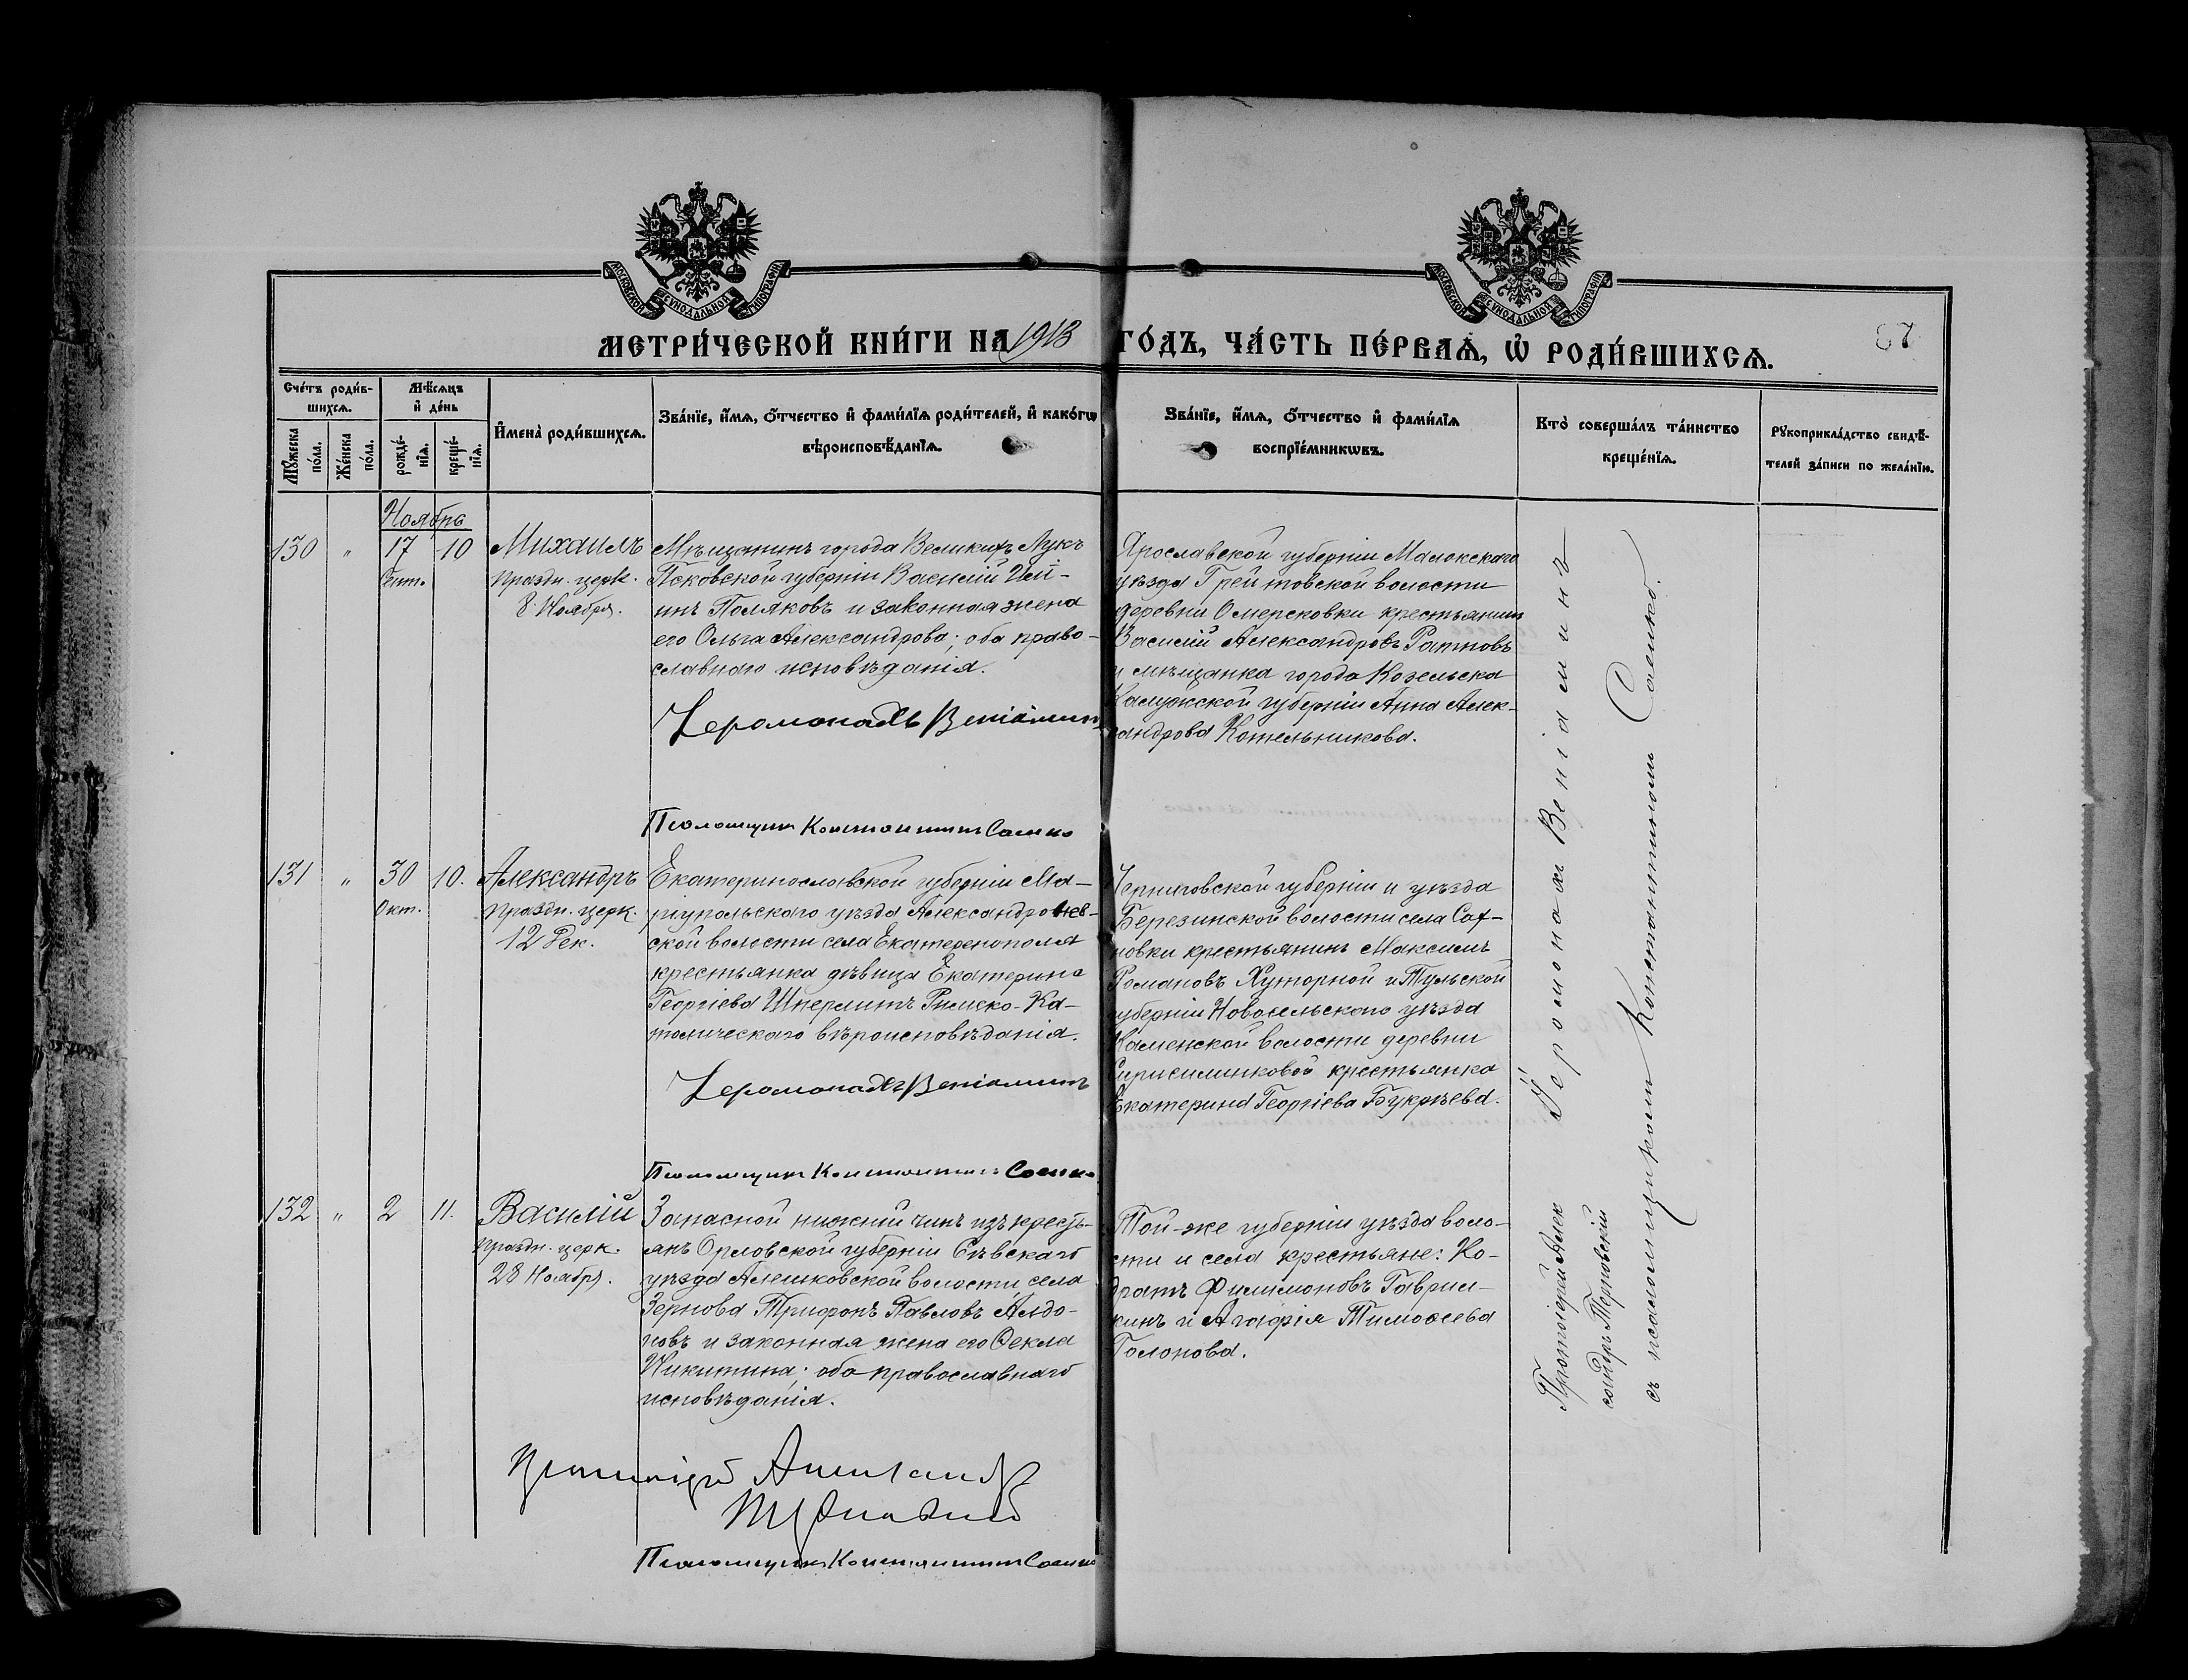 МОСКОВСКОЙ СУНОДАЛЬНОЙ ТИПОГРАФІИ
МОСКОВСКОЙ СУНОДАЛЬНОЙ ТИПОГРАФІИ
МЕТРИ́ЧЕСКОЙ КНИ́ГИ НА 1913 ГО́ДЪ, ЧА́СТЬ ПЕ́РВАѦ, Ѽ РОДИ́ВШИХСѦ.
87
Сче́тъ роди́в-
шихсѧ.
Мѣ́сѧцъ
и҆ де́нь
Мꙋ́жеска
по́ла.
Же́нска
по́ла.
рожде́-
нїѧ.
креще́-
нїѧ.
И҆мена̀ роди́вшихсѧ.
Зва́нїе, и҆́мѧ, ѻ҆́тчество и҆ фами́лїѧ роди́телей, и҆ како́гѡ
вѣроисповѣ́данїѧ.
Зва́нїе, и҆́мѧ, ѻ҆́тчество и҆ фами́лїѧ
воспрїе́мникѡвъ.
Кто̀ соверша́лъ та́инство
креще́нїѧ.
Рꙋкоприкла́дство свидѣ́-
телей за́писи по жела́нїю.
Ноябрь
130 " 17 10 Михаилъ
Сент.
Праздн. церк.
8 Ноября.
Мѣщанинъ города Великихъ Лукъ
Псковской губерніи Василій
Поляковъ и законная жена
его Ольга Александрова; оба право-
славнаго исповѣданія.
Іеромонахъ Веніаминъ
Псаломщикъ Константинъ Саенко
Ярославской губерніи
уѣзда волости
деревни крестьянинъ
Василій Александровъ
и мѣщанка города Козельска
Калужской губерніи Анна Алек-
сандрова Котельникова.
131 " 30 10. Александръ
Окт.
Праздн. церк.
12 Дек.
Екатеринославской губерніи Ма-
ріупольскаго уѣзда Александроневе-
ской волости села Екатеренополя
крестьянка дѣвица Екатерина
Георгіева Римско-Ка-
толическаго вѣроисповѣданія.
Іеромонахъ Веніаминъ
Псаломщикъ Константинъ Саенко
Черниговской губерніи и уѣзда
Березинской волости села
крестьянинъ Максимъ
Романовъ Хуторной и Тульской
губерніи Новосельскаго уѣзда
Каменской волости деревни
крестьянка
Екатерина Георгіева Букрѣева.
132 " 2 11. Василій
Праздн. церк.
28 Ноября.
Запасной нижній чинъ изъ кресть-
янъ Орловской губерніи Сѣвскаго
уѣзда Алешковской волости, села
Зернова Трифонъ Павловъ Алдо-
ховъ и законная жена его Ѳекла
Никитина; оба православнаго
исповѣданія.
Протоіерей Александръ
Терновскій
Псаломщикъ Константинъ Саенко
Той-же губерніи уѣзда воло-
сти и села крестьяне: Ко-
дратъ Филимоновъ Гаврил-
кинъ и Агафія Тимоѳеева
Голонова.
Іеромонахъ Веніаминъ
Протоіерей Алек
сандръ Терновскій
съ псаломщикомъ Константиномъ Саенко.